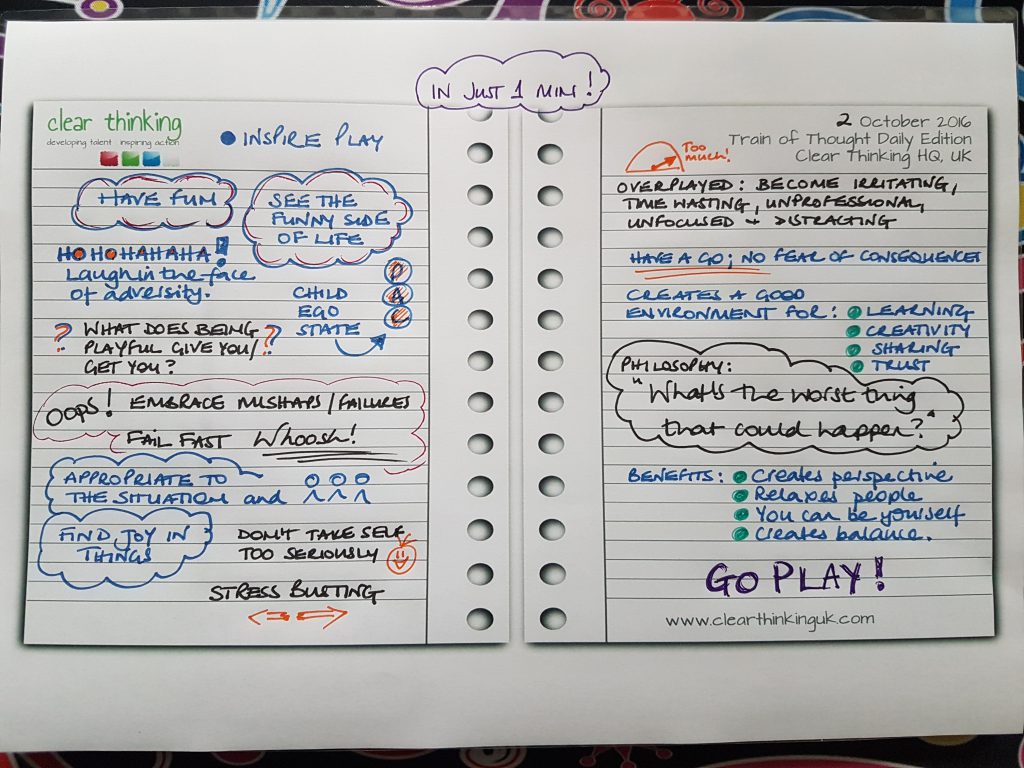 IN JUST 1 MIN!
clear thinking
developing talent inspiring action
INSPIRE PLAY
HAVE FUN
SEE THE
FUNNY SIDE
OF LIFE
HO HO HAHAHA!
Laugh in the face
of adversity.
CHILD
EGO
STATE
P
A
C
? WHAT DOES BEING ?
PLAYFUL GIVE YOU/
GET YOU?
OOPS! EMBRACE MISHAPS/FAILURES
FAIL FAST Whoosh!
APPROPRIATE TO
THE SITUATION and
FIND JOY IN
THINGS
DON'T TAKE SELF
TOO SERIOUSLY
STRESS BUSTING
2 October 2016
Train of Thought Daily Edition
Clear Thinking HQ, UK
TOO
MUCH!
OVERPLAYED: BECOME IRRITATING,
TIME WASTING, UNPROFESSIONAL,
UNFOCUSED + DISTRACTING
HAVE A GO; NO FEAR OF CONSEQUENCES
CREATES A GOOD
ENVIRONMENT FOR: LEARNING
CREATIVITY
SHARING
TRUST
PHILOSOPHY:
"What's the worst thing
that could happen?"
BENEFITS: Creates perspective
Relaxes people
You can be yourself
Creates balance.
GO PLAY!
www.clearthinkinguk.com